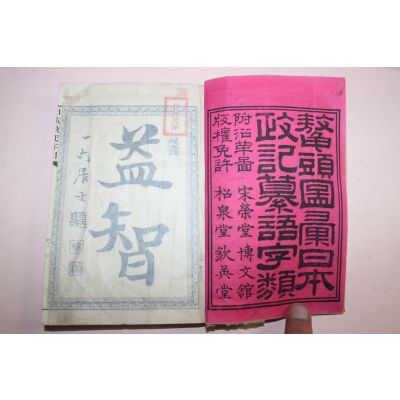 鼇頭圖彙日本
政記纂語字類
附沿革圖 宋榮堂 博文舘
版權免許 松泉堂 欽英堂
益智
一六居士題